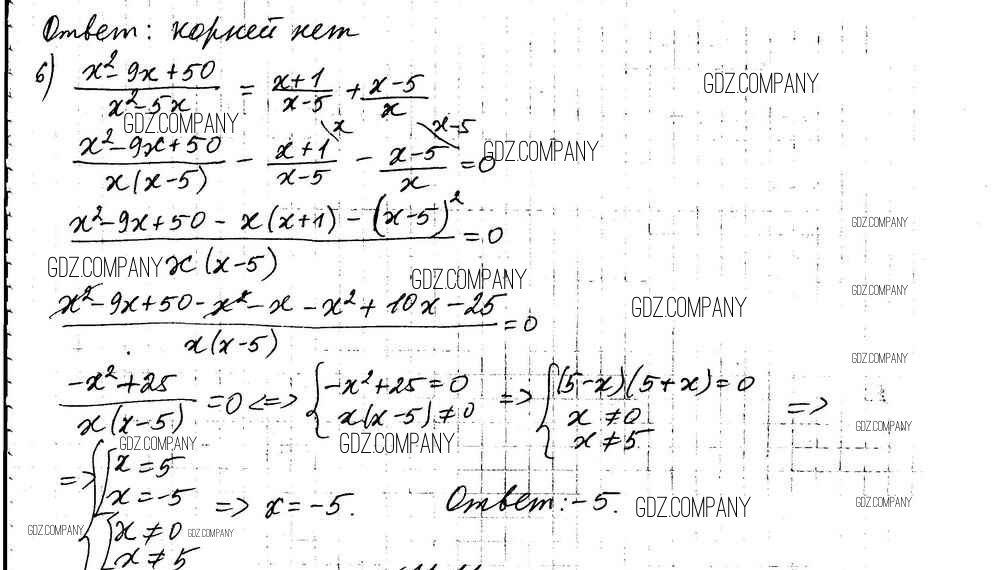 Ответ: корней нет
б) (x² - 9x + 50)/(x² - 5x) = (x+1)/(x-5) + (x-5)/x
GDZ.COMPANY
GDZ.COMPANY
(x² - 9x + 50)/(x(x-5)) - (x+1)/(x-5) \x - (x-5)/x \x-5 = 0
GDZ.COMPANY
(x² - 9x + 50 - x(x+1) - (x-5)²)/(x(x-5)) = 0
GDZ.COMPANY
GDZ.COMPANY
GDZ.COMPANY
(x² - 9x + 50 - x² - x - x² + 10x - 25)/(x(x-5)) = 0
GDZ.COMPANY
GDZ.COMPANY
GDZ.COMPANY
(-x² + 25)/(x(x-5)) = 0 <=> { -x² + 25 = 0 x(x-5) ≠ 0 => { (5-x)(5+x) = 0 x ≠ 0 x ≠ 5 =>
GDZ.COMPANY
GDZ.COMPANY
GDZ.COMPANY
=> { [ x = 5 x = -5 { x ≠ 0 x ≠ 5 => x = -5. Ответ: -5.
GDZ.COMPANY
GDZ.COMPANY
GDZ.COMPANY
GDZ.COMPANY